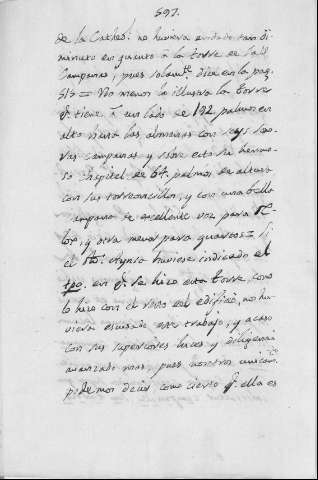 597.
de la Cathed.l no huviera andado tan di-
minuto en quanto à la torre de las
Campanas, pues solam.te dice en la pag.
515 = No menos la illustra la torre
q. tiene à un lado de 192 palmos en
alto hasta las almenas con seys
campanas y sobre esta
chapitel de 64 palmos de altura
con sus torreoncillos, y con una bella
campana de excellente voz para Re-
lox, y otra menor para quartos = Si
el
tpo. en q. se hizo esta torre, como
lo hizo con el resto del edificio, nos hu-
viera escusado este trabajo, y acaso
con sus superiores luces y diligencias
avanzado mas, pues nosotros unicam.te
podemos decir como cierto q. ella es